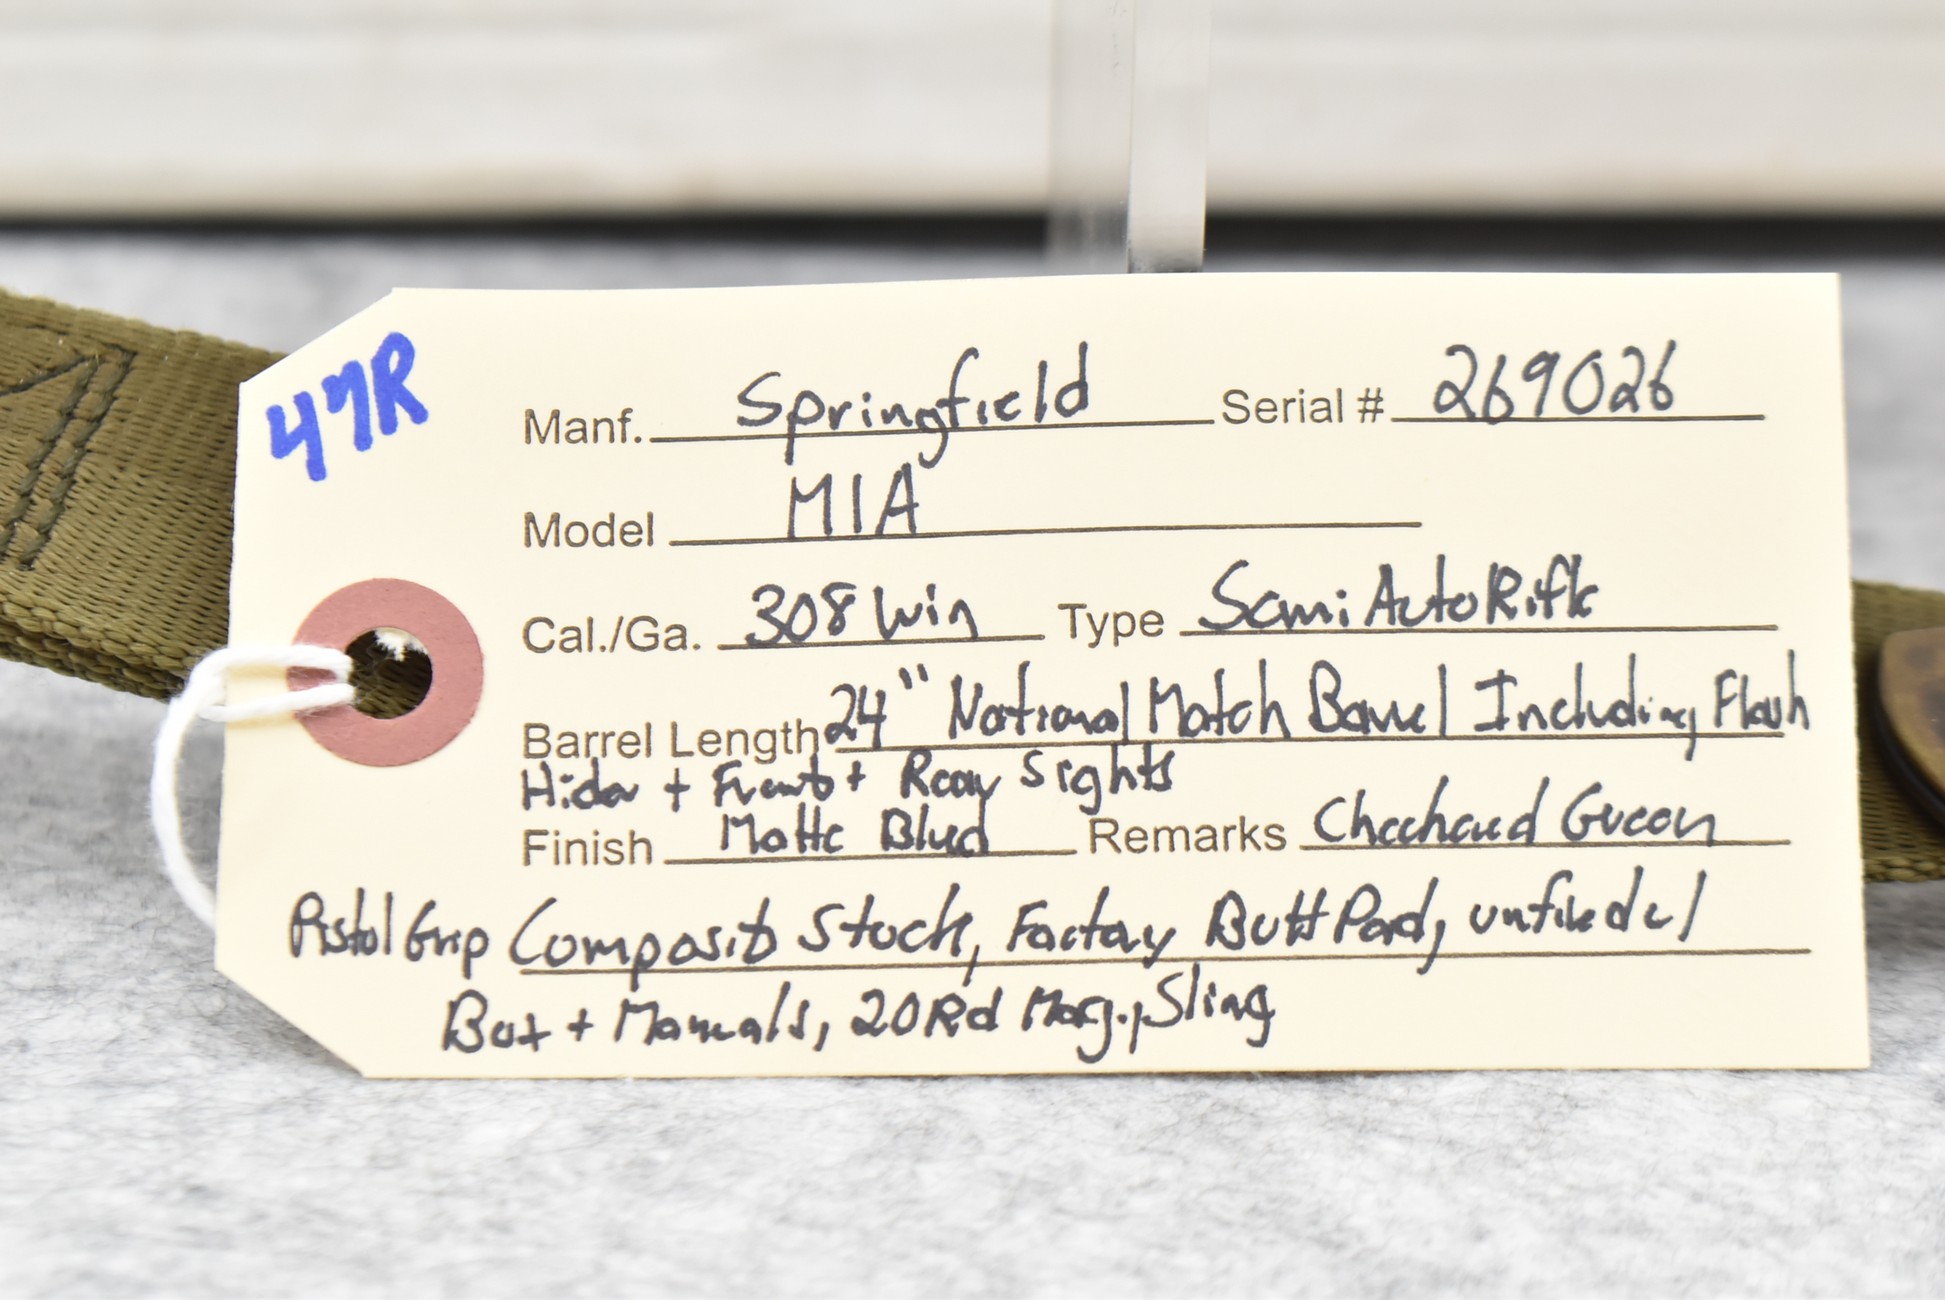 47R
Manf. Springfield Serial # 269026
Model M1A
Cal./Ga. 308 Win Type Semi Auto Rifle
Barrel Length 24" National Match Barrel Including Flash
Hider + Front + Rear Sights
Finish Matte Blued Remarks Checkered Green
Pistol Grip Composit Stock, Factory Butt Pad, unfired w/
Box + Manuals, 20Rd Mag., Sling